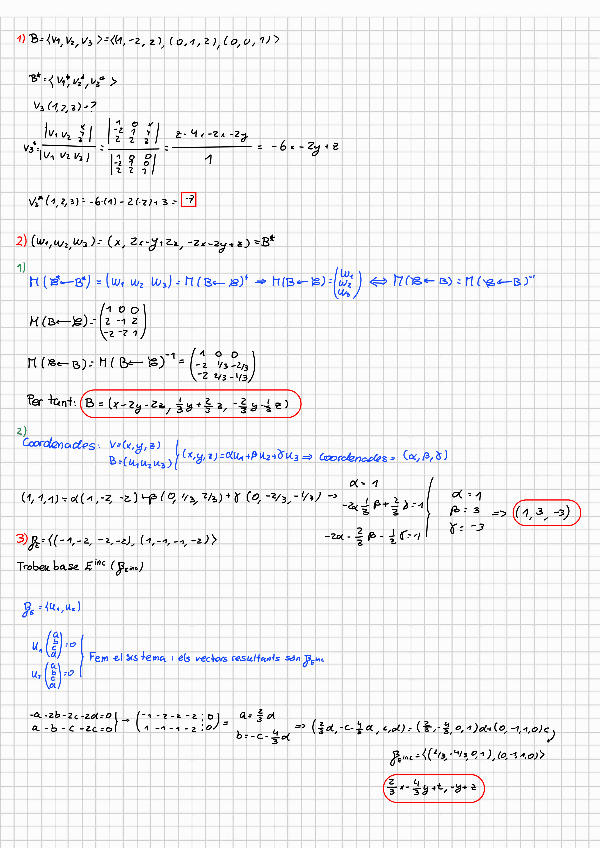 1) B=⟨v1, v2, v3⟩=⟨(1, -2, 2), (0, 1, 2), (0, 0, 1)⟩
B*=⟨v1*, v2*, v3*⟩
V3 (1,2,3)=?
V3* = |v1 v2 x y z| / |v1 v2 v3| = |1 0 x; -2 1 y; 2 2 z| / |1 0 0; -2 1 0; 2 2 1| = (z-4x-2x-2y) / 1 = -6x-2y+z
V3*(1,2,3)= -6(1) - 2(2)+3 = -7
2) (w1, w2, w3) = (x, 2x-y+2z, -2x-2y+z) = B*
1)
M(𝒞*←B*) = (w1 w2 w3) = M(B←𝒞)^t ⇒ M(B←𝒞)=(w1 w2 w3) ⟺ M(𝒞←B) = M(𝒞←B)^-1
M(B←𝒞)=(1 0 0; 2 -1 2; -2 -2 1)
M(𝒞←B)= M(B←𝒞)^-1 = (1 0 0; -2 1/3 -2/3; -2 2/3 -1/3)
Per tant: B = (x-2y-2z, 1/3 y + 2/3 z, -2/3 y - 1/3 z)
2)
Coordenades: V=(x,y,z)
B=(u1 u2 u3) } (x,y,z)=αu1+βu2+γu3 ⇒ coordenades = (α, β, γ)
(1,1,1)=α(1,-2,-2)+β(0, 1/3, 2/3)+γ(0, -2/3, -1/3) →
α=1
-2α 1/3 β + 2/3 γ=1
-2α - 2/3 β - 1/3 γ=1
α=1
β=3
γ=-3
=> (1, 3, -3)
3) β_E=⟨(-1,-2,-2,-2), (1,-1,-1,-2)⟩
Troben base E^inc (β_E^inc)
β_E = (u1, u2)
u1 (a b c d)=0
u2 (a b c d)=0
Fem el sistema i els vectors resultants són β_E^inc
-a-2b-2c-2d=0
a-b-c-2c=0
→ (-1 -2 -2 -2 : 0; 1 -1 -1 -2 : 0) =
a=2/3 d
b=-c-4/3 d
=> (2/3 d, -c-4/3 d, c, d) = (2/3, -4/3, 0, 1)d+(0, -1, 1, 0)c
β_E^inc=⟨(2/3, -4/3, 0, 1), (0,-1,1,0)⟩
2/3 x - 4/3 y + t, -y+z